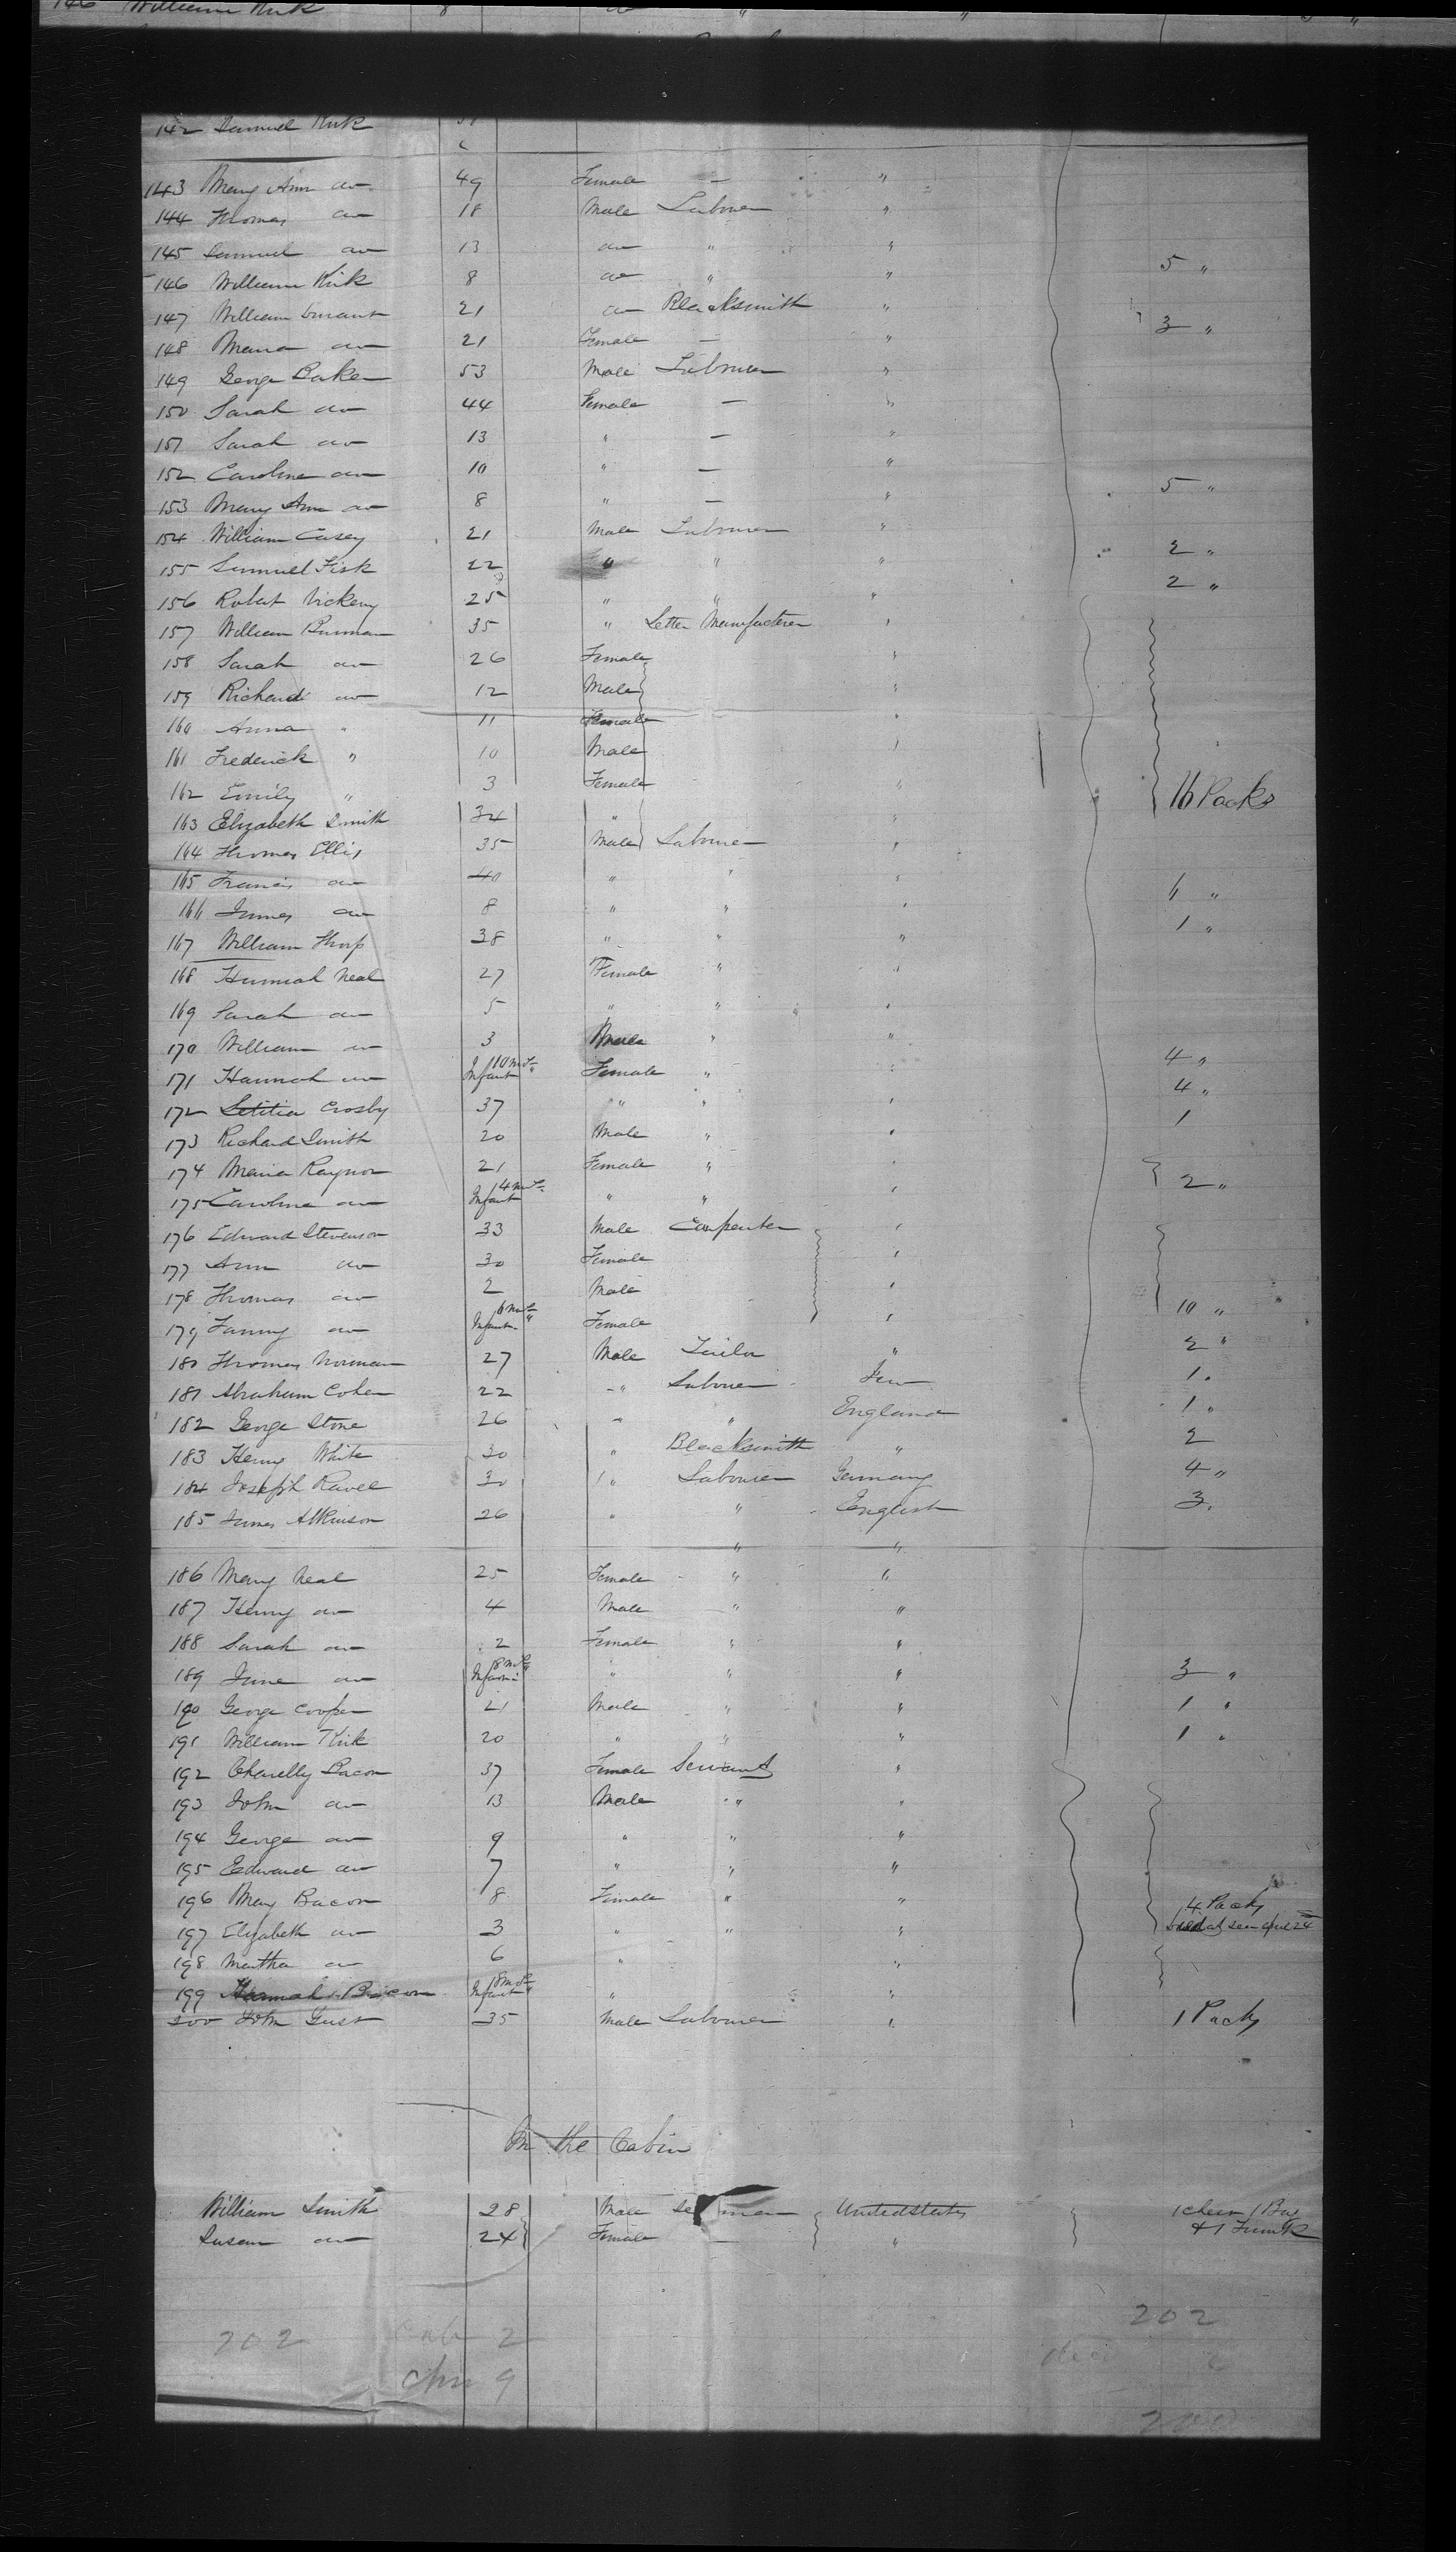 146 William Kirk 8 do " "
142 Samuel Kirk
143 Mary Ann do 49 Female — "
144 Thomas do 18 Male Labourer "
145 Samuel do 13 do " "
146 William Kirk 8 do " " 5 "
147 William 21 do Blacksmith "
148 Maria do 21 Female — " 3 "
149 George Baker 53 Male Labourer "
150 Sarah do 44 Female — "
151 Sarah do 13 " — "
152 Caroline do 10 " — "
153 Mary Ann do 8 " — " 5 "
154 William Casey 21 Male Labourer "
155 Samuel Fisk 22 " " " 2 "
156 Robert Vickery 25 " " " 2 "
157 William Burman 35 " Letter Manufacturer "
158 Sarah do 26 Female "
159 Richard do 12 Male "
160 Anna " 11 Female "
161 Frederick " 10 Male "
162 Emily " 3 Female " 16 Packs
163 Elizabeth Smith 34 " "
164 Thomas Ellis 35 Male Labourer "
165 Francis do 40 " " "
166 James do 8 " " " 6 "
167 William Thorp 38 " " " 1 "
168 Hannah Neal 27 Female " "
169 Sarah do 5 " " "
170 William do 3 Male " "
171 Hannah do Infant 10 Mths Female " " 4 "
172 Letitia Crosby 37 " " " 4 "
173 Richard Smith 20 Male " " 1
174 Maria Raynor 21 Female " "
175 Caroline do Infant 4 Mths " " " 2 "
176 Edward Stevenson 33 Male Carpenter "
177 Ann do 30 Female "
178 Thomas do 2 Male "
179 Fanny do Infant 6 Mths Female " 10 "
180 Thomas Norman 27 Male Tailor " 2 "
181 Abraham Cohen 22 " Labourer Jew 1 "
182 George Stone 26 " " England 1 "
183 Henry White 30 " Blacksmith " 2
184 Joseph Ravel 30 " Labourer Germany 4 "
185 James Atkinson 26 " " English 3 "
" "
186 Mary Neal 25 Female " "
187 Henry do 4 Male " "
188 Sarah do 2 Female " "
189 Jane do Infant 8 Mths " " " 3 "
190 George Cooper 21 Male " " 1 "
191 William Kirk 20 " " " 1 "
192 Bacon 37 Female Servant "
193 John do 13 Male " "
194 George do 9 " " "
195 Edward do 7 " " "
196 Mary Bacon 8 Female " " 4 Packs
197 Elizabeth do 3 " " "
198 Martha do 6 " "
199 Hannah Bacon Infant 8 Mths " "
200 John Gust 35 Male Labourer " 1 Pack
In the Cabin
William Smith 28 Male United States 1 Chest 1 Bag
Susan do 24 Female — " & 1 Trunk
202
202 Cab 2
Chn 9
200